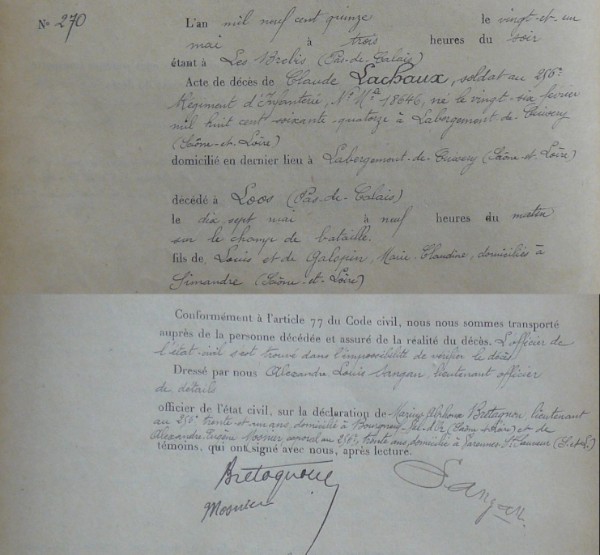 N° 270
L'an mil neuf cent quinze le vingt-et-un
mai à trois heures du soir
étant à Les Brebis (Pas-de-Calais)
Acte de décès de Claude Lachaux, soldat au 256e
Régiment d'Infanterie, N° Mle 18646, né le vingt-six février
mil huit cent soixante quatorze à Labergement-de-Cuisery
(Saône-et-Loire)
domicilié en dernier lieu à Labergement-de-Cuisery (Saône-et-Loire)
décédé à Loos (Pas-de-Calais)
le dix sept mai à neuf heures du matin
sur le champ de bataille.
fils de Louis et de Galopin, Marie-Claudine, domiciliés à
Simandre (Saône-et-Loire)
Conformément à l'article 77 du Code civil, nous nous sommes transporté
auprès de la personne décédée et assuré de la réalité du décès. L'officier de
l'état-civil s'est trouvé dans l'impossibilité de vérifier le décès
Dressé par nous Alexandre Louis lieutenant officier
de détails
officier de l'état civil, sur la déclaration de Marius Alphonse Bretagnon lieutenant
au 256e trente et un ans, domicilié à et de
Alexandre caporal au 256e, trente ans domicilié à Varennes St Sauveur (S et L)
témoins, qui ont signé avec nous, après lecture.